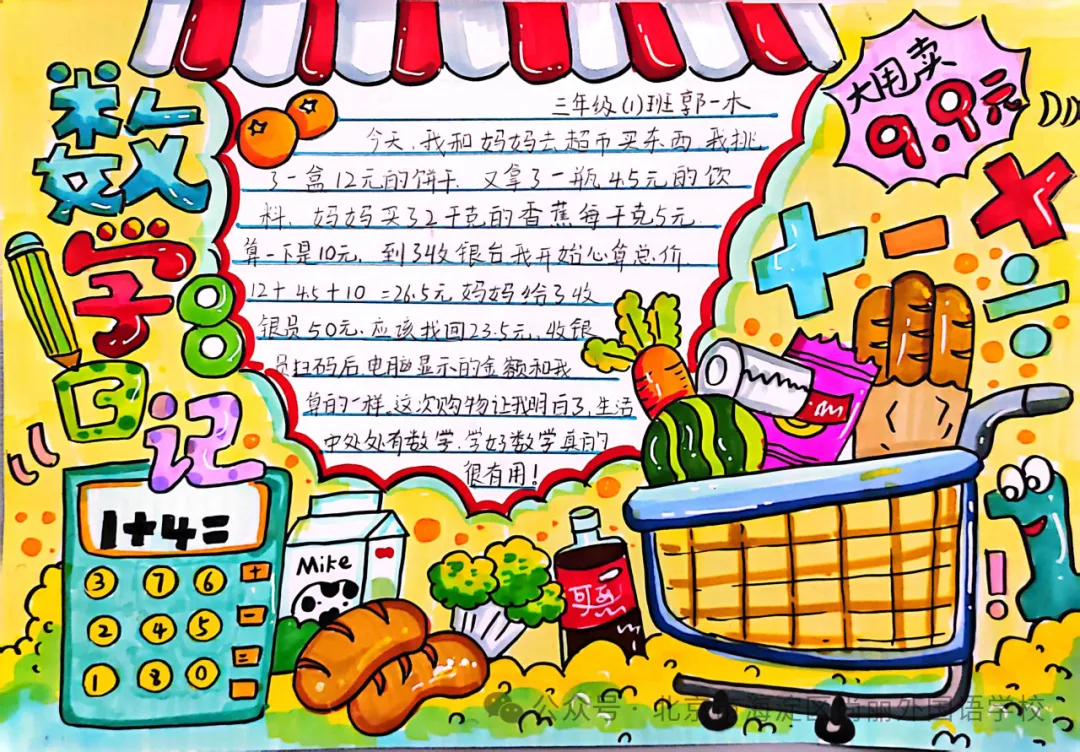 数学日记
大甩卖
9.9元
三年级(1)班郭一木
今天,我和妈妈去超市买东西,我挑
了一盒12元的饼干,又拿了一瓶4.5元的饮
料,妈妈买了2千克的香蕉每千克5元.
算一下是10元,到了收银台我开始心算总价
12+4.5+10=26.5元妈妈给了收
银员50元.应该找回23.5元,收银
员扫码后电脑显示的金额和我
算的一样.这次购物让我明白了,生活
中处处有数学.学好数学真的
很有用!
1+4=
3 7 6 +
2 4 5 -
1 8 0
Mike
可
公众号·北京 海淀区 丽外国语学校